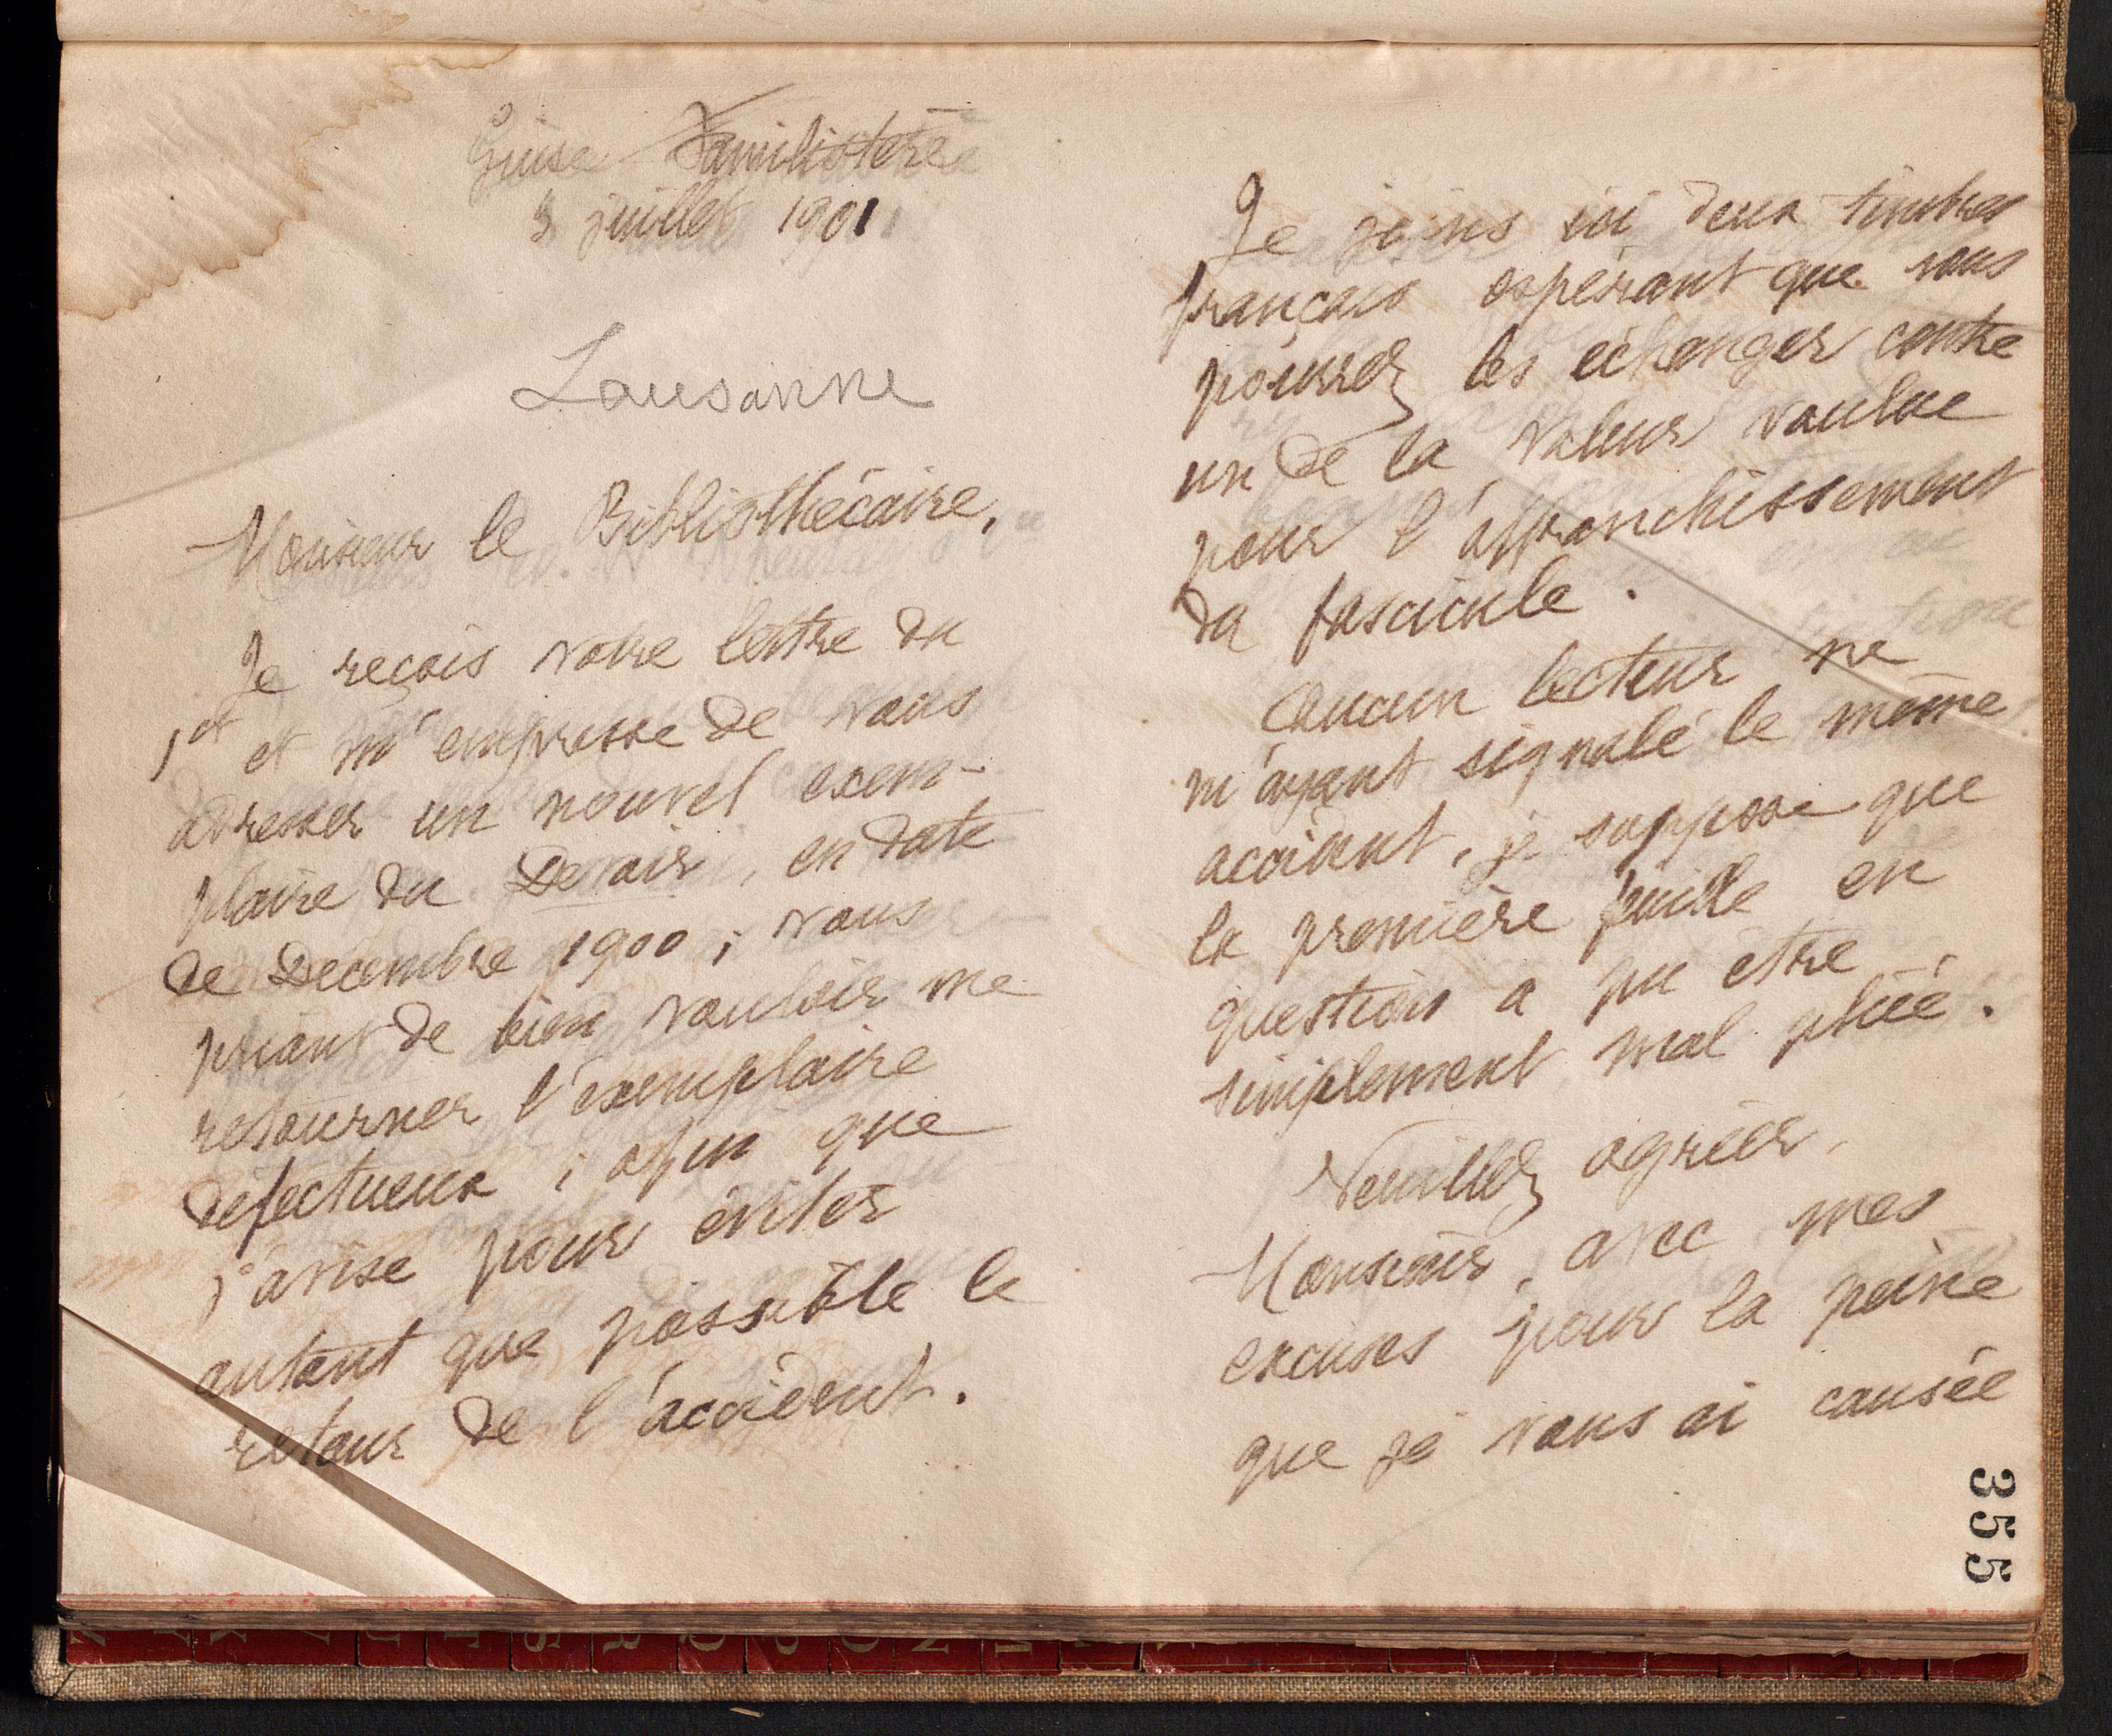 Guise Familistère
3 juillet 1901
Lausanne
Monsieur le Bibliothécaire,
Je reçois votre lettre du
1er et m'empresse de vous
adresser un nouvel exem-
plaire du Devoir, en date
de Décembre 1900, vous
priant de bien vouloir me
retourner l'exemplaire
défectueux, afin que
j'avise pour éviter
autant que possible le
retour de l'accident.
Je joins ici deux timbres
français espérant que vous
pourrez les échanger contre
un de la valeur voulue
pour l'affranchissement
du fascicule.
Aucun lecteur ne
m'ayant signalé le même
accident, je suppose que
la première feuille en
question a pu être
simplement mal pliée.
Veuillez agréer,
Monsieur, avec mes
excuses pour la peine
que je vous ai causée
355